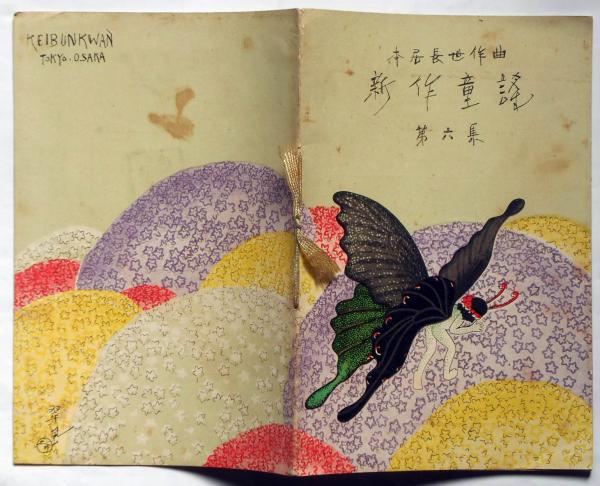 KEIBUNKWAN
TOKYO.OSAKA
本居長世作曲
新作童謡
第六集